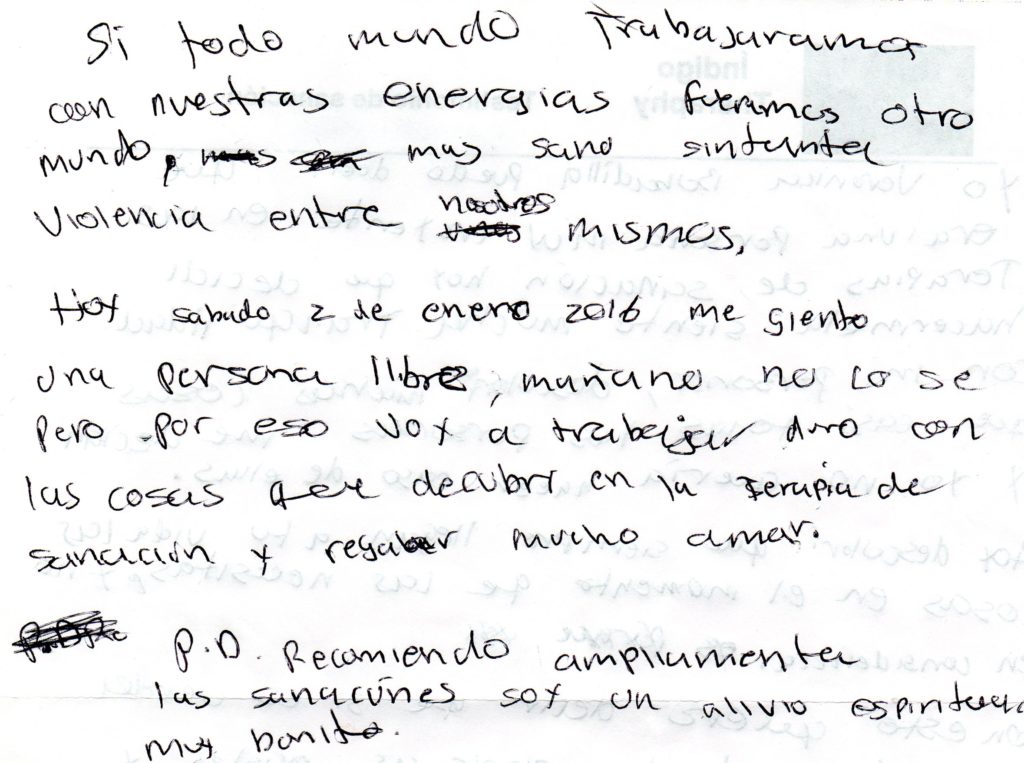 Si todo mundo Trabajaramos
con nuestras energias fueramos otro
mundo, mas sano sin tanta
violencia entre nosotros mismos,
Hoy sabado 2 de enero 2016 me siento
una persona libre, mañana no lo se
pero por eso voy a trabajar duro con
las cosas que decubri en la terapia de
sanación y regalar mucho amor.
P.D. Recomiendo ampliamente
las sanaciónes soy un alivio espiritual
muy bonito.